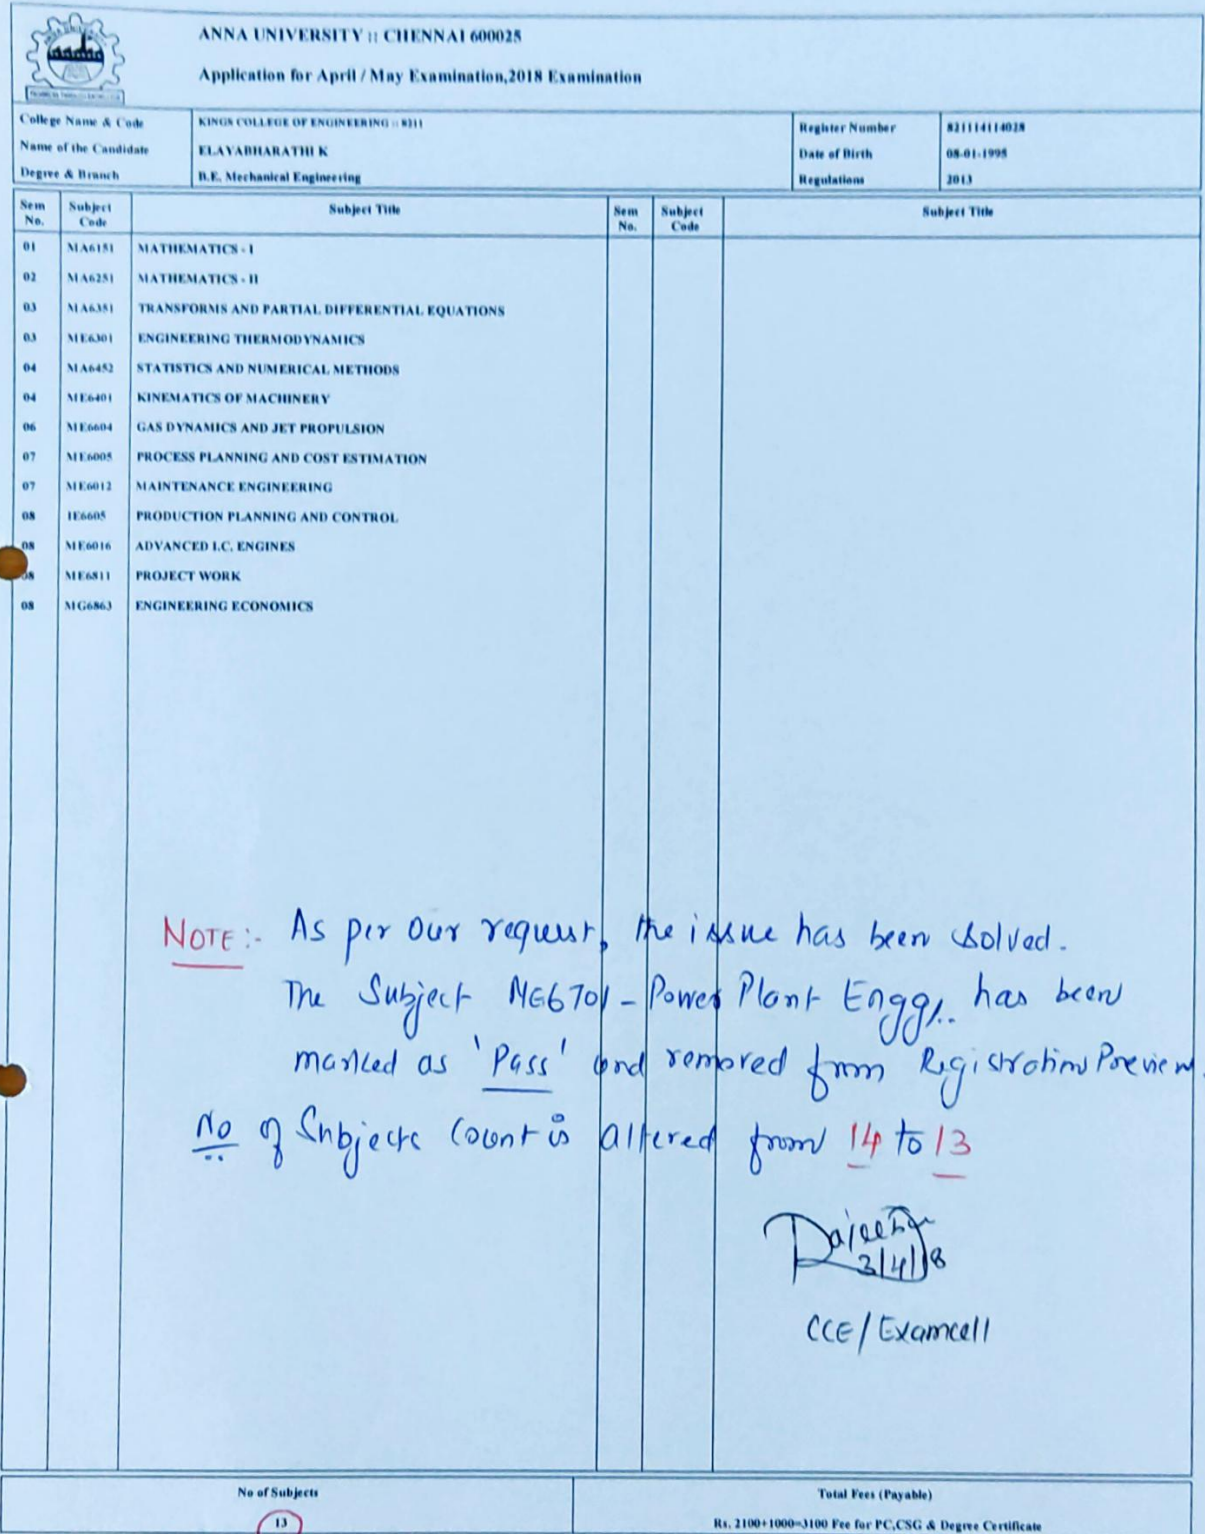 ANNA UNIVERSITY :: CHENNAI 600025
Application for April / May Examination,2018 Examination
College Name & Code KINGS COLLEGE OF ENGINEERING :: 8211
Name of the Candidate ELAYABHARATHI K
Degree & Branch B.E. Mechanical Engineering
Register Number 821114114028
Date of Birth 08-01-1995
Regulations 2013
Sem No. Subject Code Subject Title Sem No. Subject Code Subject Title
01 MA6151 MATHEMATICS - I
02 MA6251 MATHEMATICS - II
03 MA6351 TRANSFORMS AND PARTIAL DIFFERENTIAL EQUATIONS
03 ME6301 ENGINEERING THERMODYNAMICS
04 MA6452 STATISTICS AND NUMERICAL METHODS
04 ME6401 KINEMATICS OF MACHINERY
06 ME6604 GAS DYNAMICS AND JET PROPULSION
07 ME6005 PROCESS PLANNING AND COST ESTIMATION
07 ME6012 MAINTENANCE ENGINEERING
08 IE6605 PRODUCTION PLANNING AND CONTROL
08 ME6016 ADVANCED I.C. ENGINES
08 ME6811 PROJECT WORK
08 MG6863 ENGINEERING ECONOMICS
NOTE:- As per our request, the issue has been solved.
The Subject ME6701 - Power Plant Engg,. has been
marked as 'Pass' and removed from Registration Preview.
No of Subjects Count is altered from 14 to 13
3/4/18
CCE/Examcell
No of Subjects
13
Total Fees (Payable)
Rs. 2100+1000=3100 Fee for PC,CSG & Degree Certificate